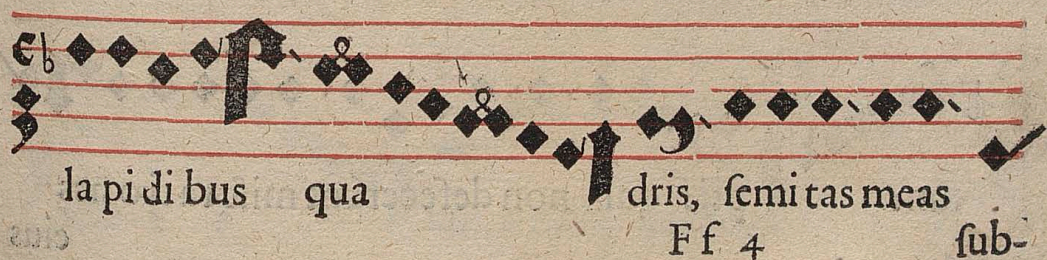 la pi di bus qua dris, ſemi tas meas
F f 4 ſub-